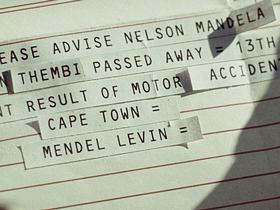 EASE ADVISE NELSON MANDELA
THEMBI PASSED AWAY = 13TH
NT RESULT OF MOTOR ACCIDEN
CAPE TOWN =
MENDEL LEVIN =